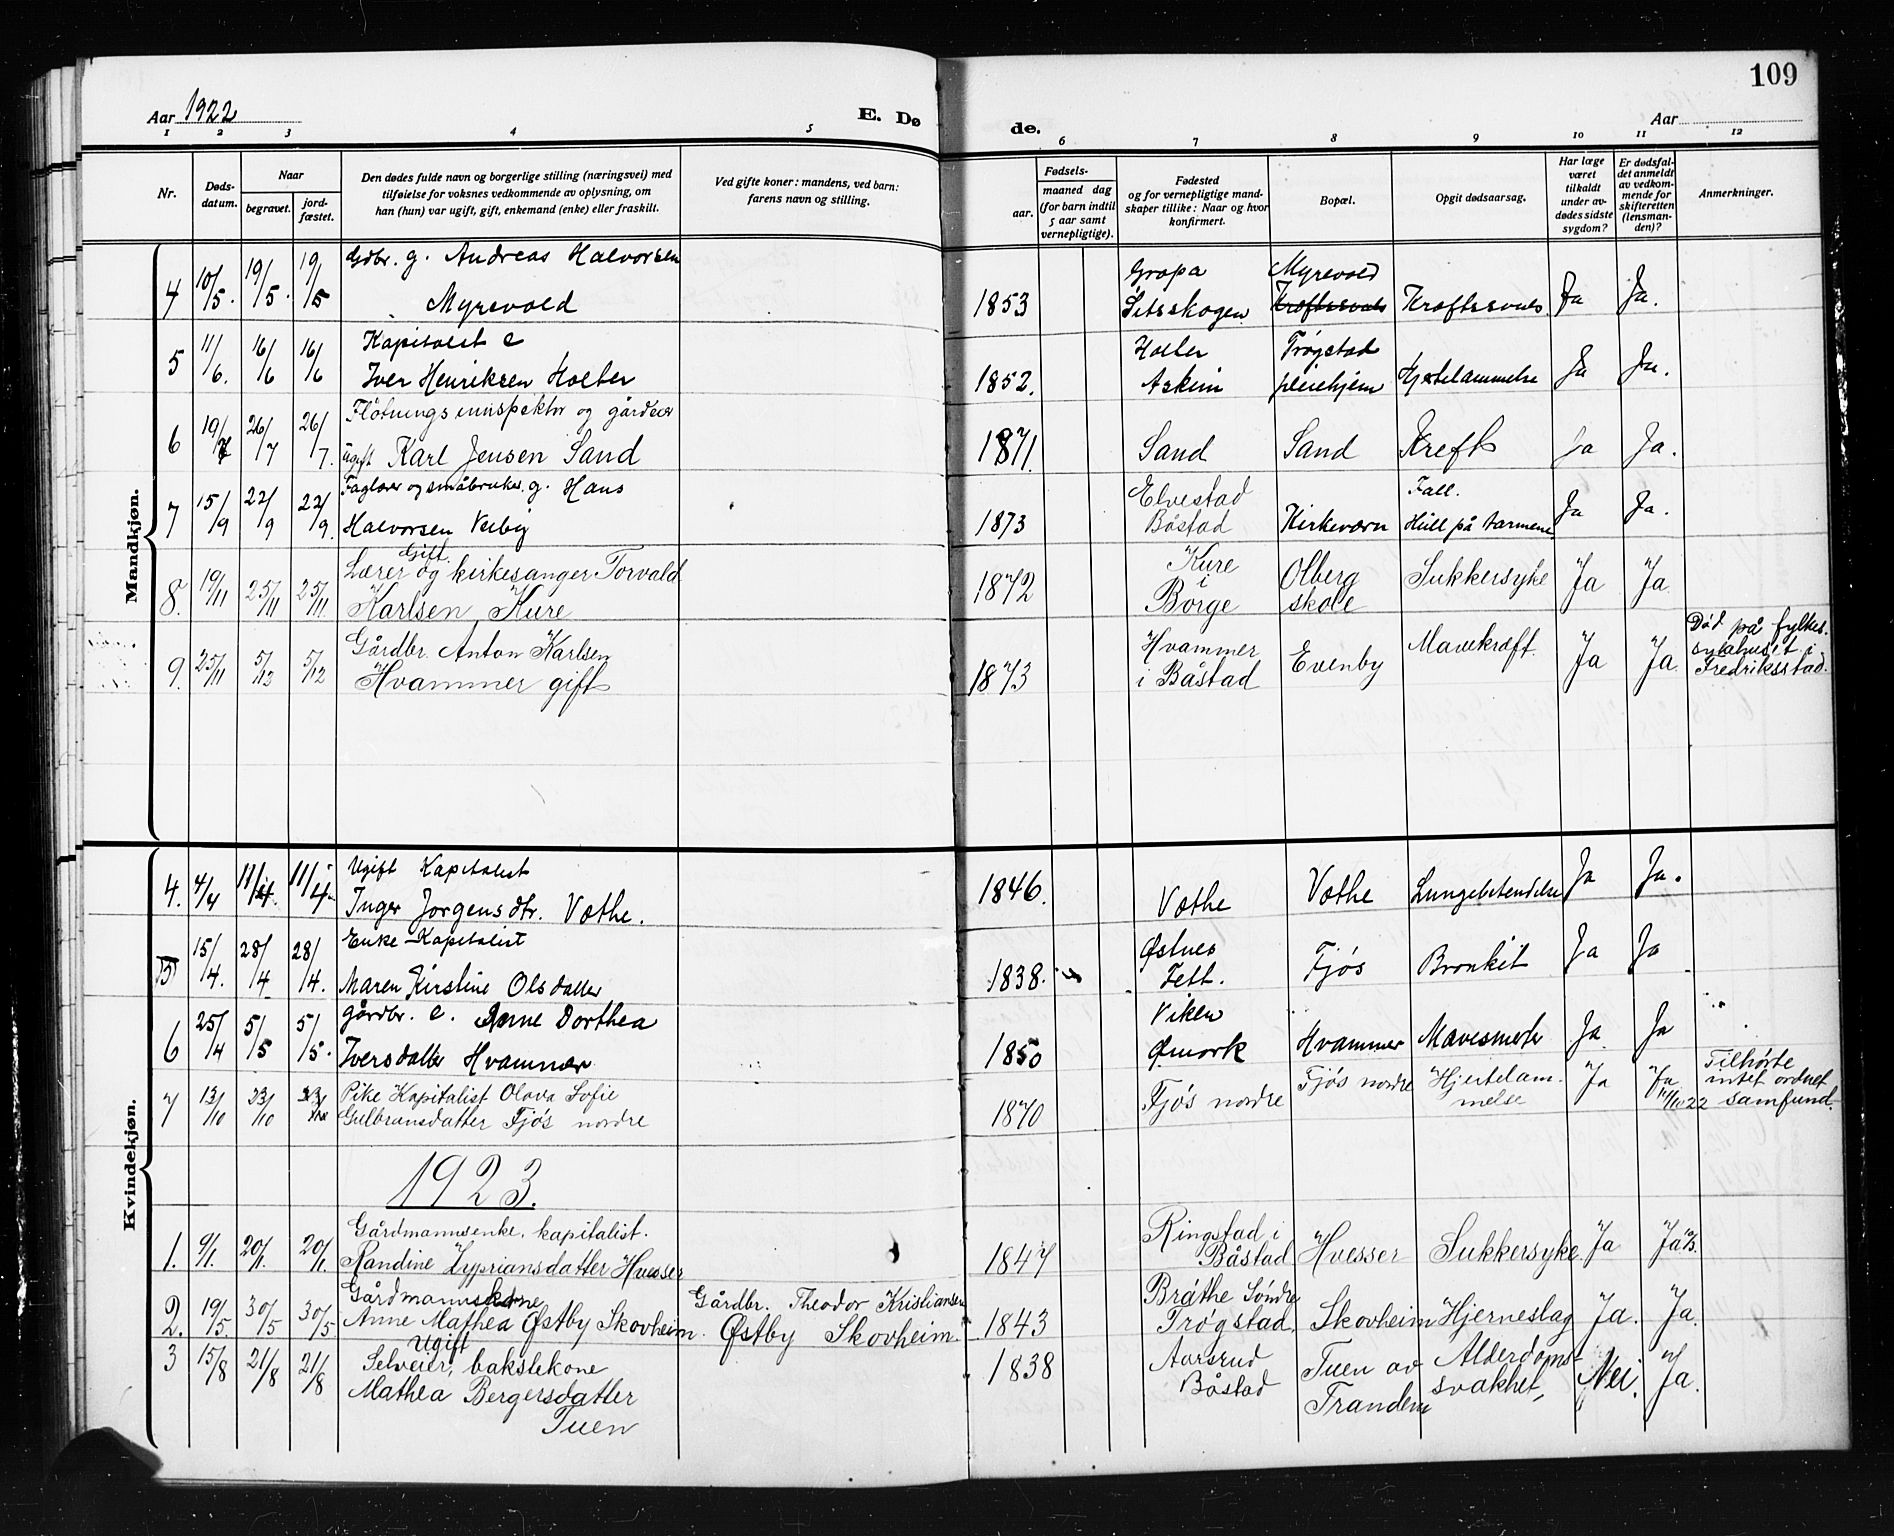 109
Aar 1922
E. Dø
de.
Aar
1 2 3 4 5 6 7 8 9 10 11 12
Nr.
Døds-
datum.
Naar
begravet.
jord-
fæstet.
Den dødes fulde navn og borgerlige stilling (næringsvei) med
tilføielse for voksnes vedkommende av oplysning, om
han (hun) var ugift, gift, enkemand (enke) eller fraskilt.
Ved gifte koner: mandens, ved barn:
farens navn og stilling.
Fødsels-
aar.
maaned dag
(for barn indtil
5 aar samt
vernepligtige).
Fødested
og for vernepligtige mand-
skaper tillike: Naar og hvor
konfirmert.
Bopæl.
Opgit dødsaarsag.
Har læge
været
tilkaldt
under av-
dødes sidste
sygdom?
Er dødsfal-
det anmeldt
av vedkom-
mende for
skifteretten
(lensman-
den)?
Anmerkninger.
Mandkjøn.
4 10/5. 19/5. 19/5
Gdbr. g. Andreas Halvorsen
Myrevold
1853
Gropa
Setsskogen
Myrevold
Kræftsvuls
Kræftssvuls
Ja Ja.
5 11/6. 16/6 16/6
Kapitalist e
Iver Henriksen Holter
1852.
Holter
Askim
Trøgstad
pleiehjem
Hjertelammelse
Ja Ja.
6 19/7 26/7 26/7.
Fløtningsinnspektør og gårdeier
ugift Karl Jensen Sand
1871.
Sand
Sand
Kreft
Ja Ja.
7 15/9 22/9 22/9.
Faglærer og småbruker. g. Hans
Halvorsen Velby
1873
Elvestad
Båstad
Kirkevarn
Fall.
Hull på tarmene
Ja Ja.
8. 19/11 25/11 25/11.
Gift
Lærer og kirkesanger Torvald
Karlsen Kure
1872
Kure
i
Borge
Olberg
skole
Sukkersyke
Ja Ja
9. 25/11 5/12 5/12
Gårdbr. Anton Karlsen
Hvammer gift
1873
Hvammer
i Båstad
Evenby
Mavekræft.
Ja Ja.
Død på fylkes-
sykehuset i
Fredriksstad.
Kvindekjøn.
4. 4/4 11/4. 11/4.
Ugift Kapitalist
Inger Jørgensdtr. Vothe.
1846.
Vothe
Vothe
Lungebetendelse
Ja Ja.
5 15/4. 28/4 28/4.
Enke Kapitalist
Maren Kirstine Olsdatter
1838.
Østnes
Fett.
Fjøs
Bronkit
Ja Ja
6 25/4 5/5 5/5.
gårdbr. e. Anne Dorthea
Iversdatter Hvammer
1850
Viken
Ømark
Hvammer
Mavesmerter
Ja Ja
7 13/10 23/10 23/10
Pike Kapitalist Olava Sofie
Gulbransdatter Fjøs nordre
1870
Fjøs nordre
Fjøs nordre
Hjertelam-
melse
Ja Ja
11/10 22
Tilhørte
intet ordnet
samfund.
1923.
1. 9/1. 20/1. 20/1.
Gårdmannsenke, kapitalist.
Randine Zypriansdatter Hvesser
1847
Ringstad i
Båstad
Hvesser
Sukkersyke
Ja Ja
2. 19/5. 30/5 30/5
Gårdmannskone
Anne Mathea Østby Skovheim.
Gårdbr. Theodor Kristiansen
Østby Skovheim.
1843
Bråthe Søndre
Trøgstad.
Skovheim
Hjerneslag
Ja. Ja.
3 15/8 21/8 21/8
Ugift
Selveier, bakstekone
Mathea Bergersdatter
Tuen
1838
Aarsrud
Båstad
Tuen av
Trandem
Alderdoms-
svakhet,
Nei. Ja.